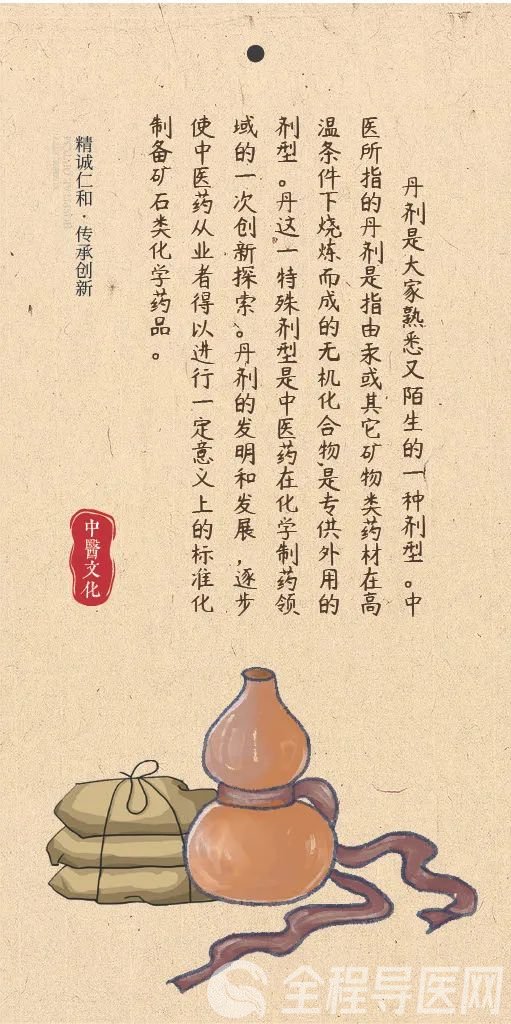 丹剂是大家熟悉又陌生的一种剂型。中
医所指的丹剂是指由汞或其它矿物类药材在高
温条件下烧炼而成的无机化合物,是专供外用的
剂型。丹这一特殊剂型是中医药在化学制药领
域的一次创新探索。丹剂的发明和发展,逐步
使中医药从业者得以进行一定意义上的标准化
制备矿石类化学药品。
精诚仁和·传承创新
中醫文化
全程导医网